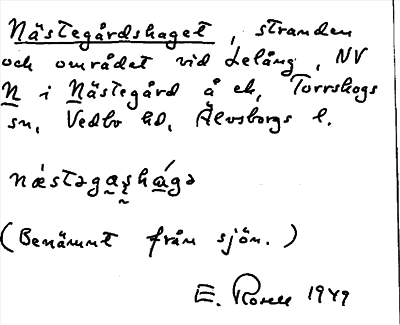 Nästegårdshaget, stranden
och området vid Lelång, NV
N i Nästegård å ek, Torrskogs
sn, Vedbo hd, Älvsborgs l.
nǽstəga̰ʂ̰há̱gə
(Benämnt från sjön.)
E. Rosell 1949